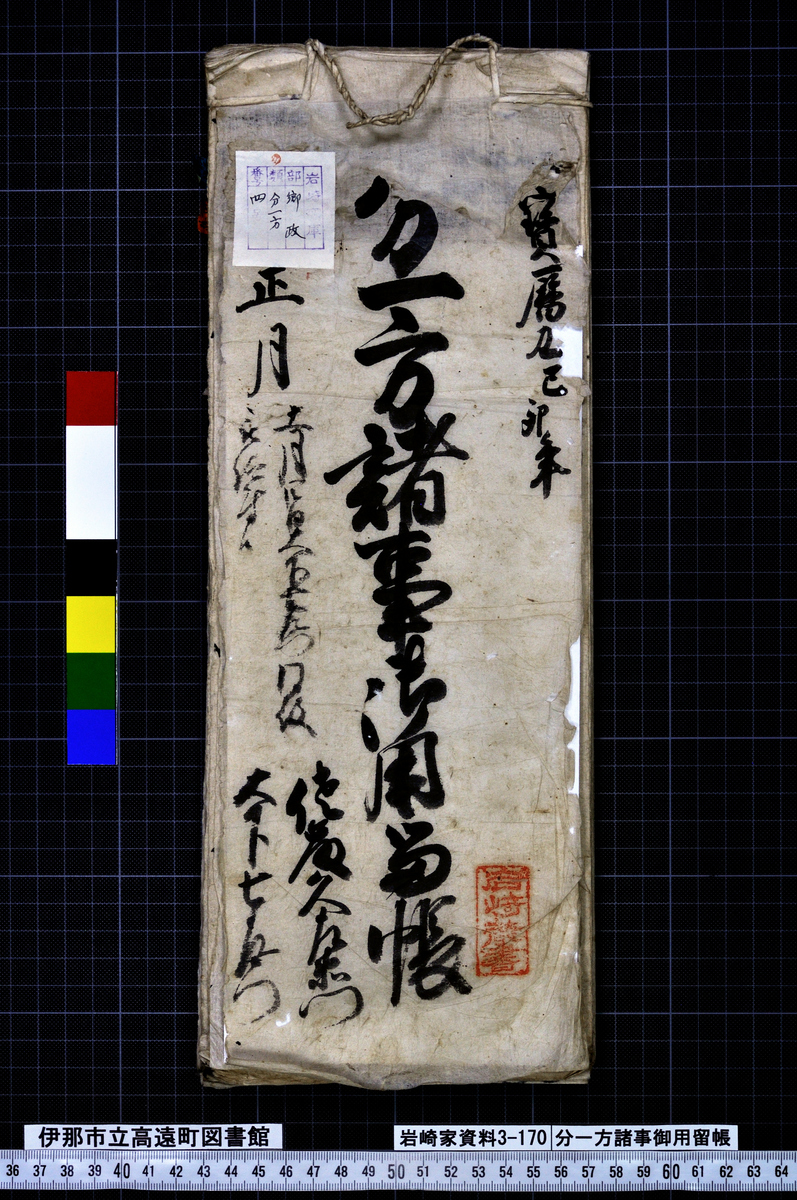 寳暦九己卯年
分一方諸事御用留帳
正月
佐藤久左衛門
大下七兵衛門
岩崎蔵書
岩崎庫
部 郷政
類 分一方
番号 四
伊那市立高遠町図書館
岩崎家資料3-170 分一方諸事御用留帳
36 37 38 39 40 41 42 43 44 45 46 47 48 49 50 51 52 53 54 55 56 57 58 59 60 61 62 63 64